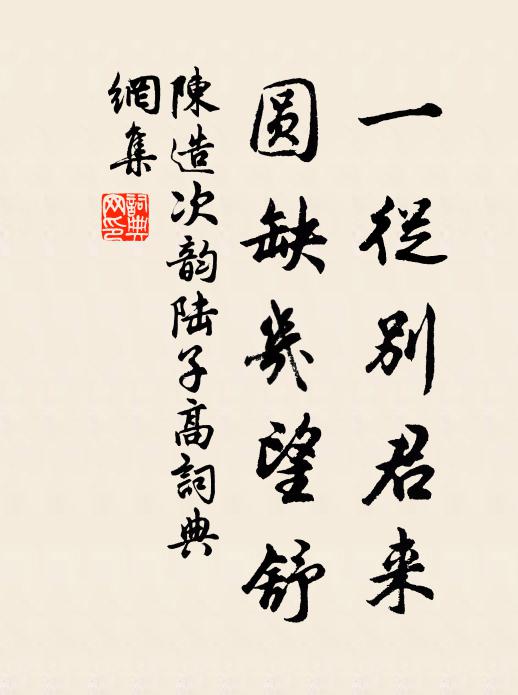 一從别君来
圆缺幾望舒
陳造次韵陆子高詞典
網集
詞典网印